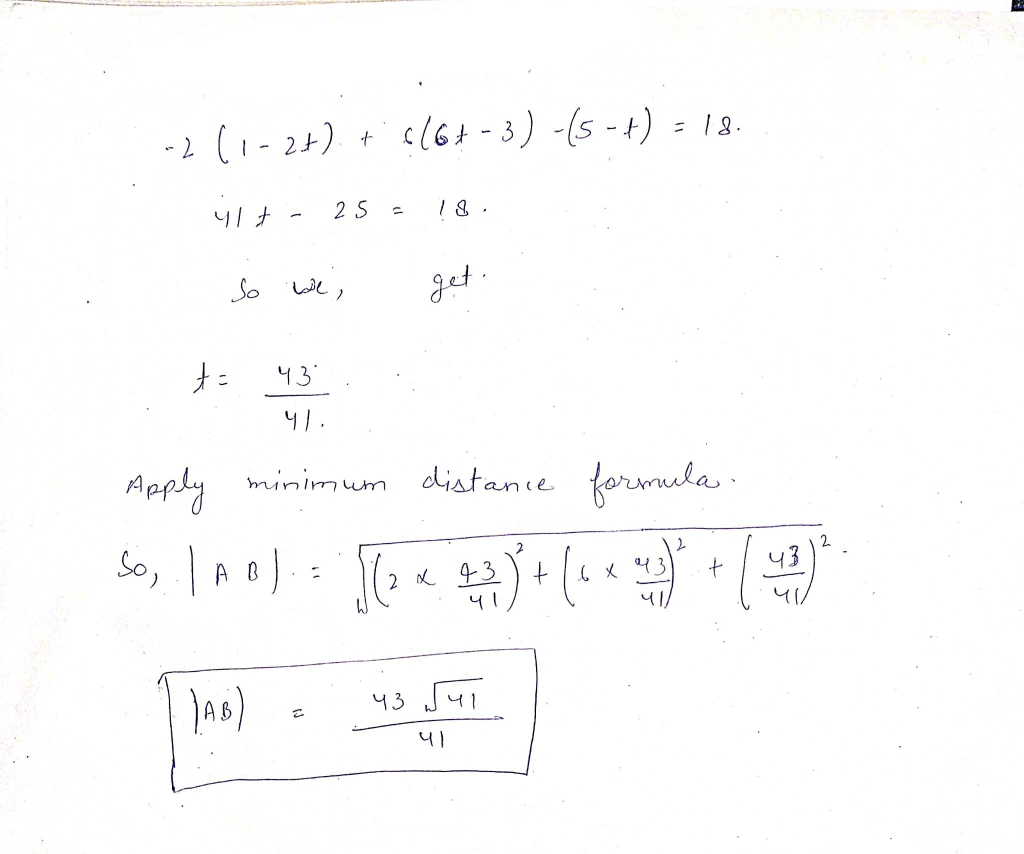 -2 (1-2t) + 6(6t-3) -(5-t) = 18.
41t - 25 = 18.
So we, get.
t = 43/41.
Apply minimum distance formula.
So, |AB| = √((2 × 43/41)² + (6 × 43/41)² + (43/41)²).
|AB| = 43√41/41